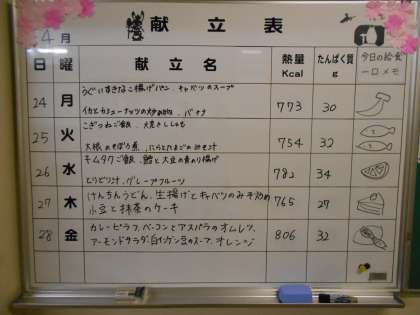 献立表
4月
日 曜 献立名 熱量 Kcal たんぱく質 g 今日の給食一口メモ
24 月 うぐいすきなこ揚げパン、キャベツのスープ 773 30
イカとカシューナッツの炒め物、バナナ
25 火 こぎつねご飯、焼きししゃも 754 32
大根のそぼろ煮、にらとたまごのみそ汁
26 水 キムタクご飯、鱈と大豆の青のり揚げ 782 34
とうどり汁、グレープフルーツ
27 木 けんちんうどん、生揚げとキャベツのみそ炒め 765 27
小豆と抹茶のケーキ
28 金 カレーピラフ、ベーコンとアスパラのオムレツ、 806 32
アーモンドサラダ、白インゲン豆のスープ、オレンジ